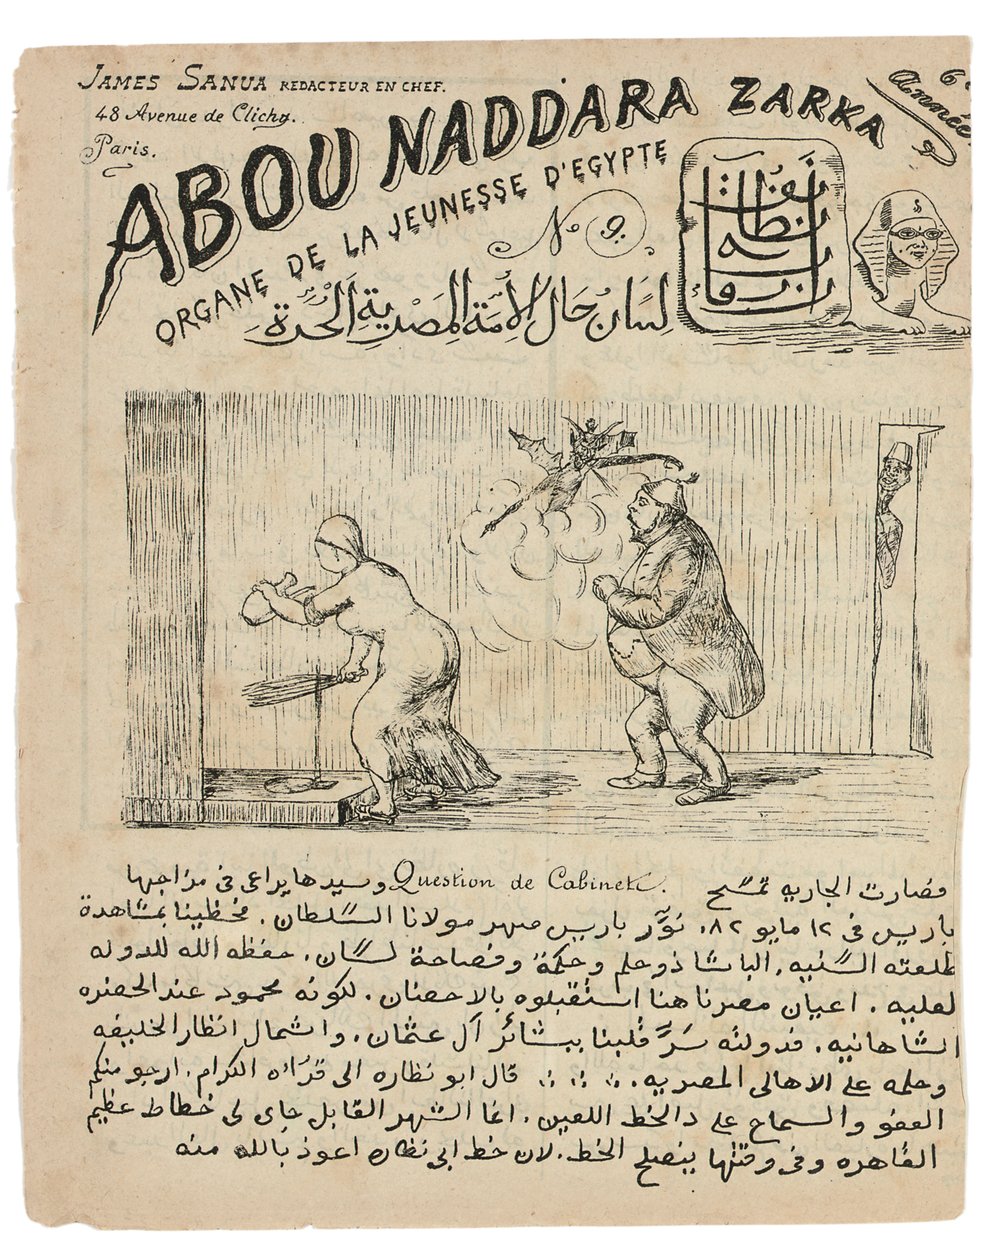 JAMES SANUA REDACTEUR EN CHEF.
48 Avenue de Clichy.
Paris.
ABOU NADDARA ZARKA
6e Année
ORGANE DE LA JEUNESSE D'EGYPTE
No 9.
لسان حال الأمة المصرية الحرة
فصارت الجاريه تمسح Question de Cabinet. وسيدها يراعى فى مزاجها
باريس فى ١٢ مايو ٨٢. نوّر باريس صهر مولانا السلطان. فحظينا بمشاهدة
طلعته السنيه. الباشا ذو علم وحكمة وفصاحة لسان. حفظه الله للدوله
لعليه. اعيان مصرنا هنا استقبلوه بالاحضان. لكونه محمود عند الحضره
الشاهانيه. فدولته سرّ قلبنا ببشائر آل عثمان. واشمال انظار الخليفه
وحلمه على الاهالى المصريه. قال ابو نظاره الى قرّاه الكرام. ارجو منكم
العفو والسماح على دالخط اللعين. انما الشهر القابل جاى لى خطاط عظيم
القاهره وفى وقتها ينصلح الخط. لان خط ابى نظاره اعوذ بالله منه